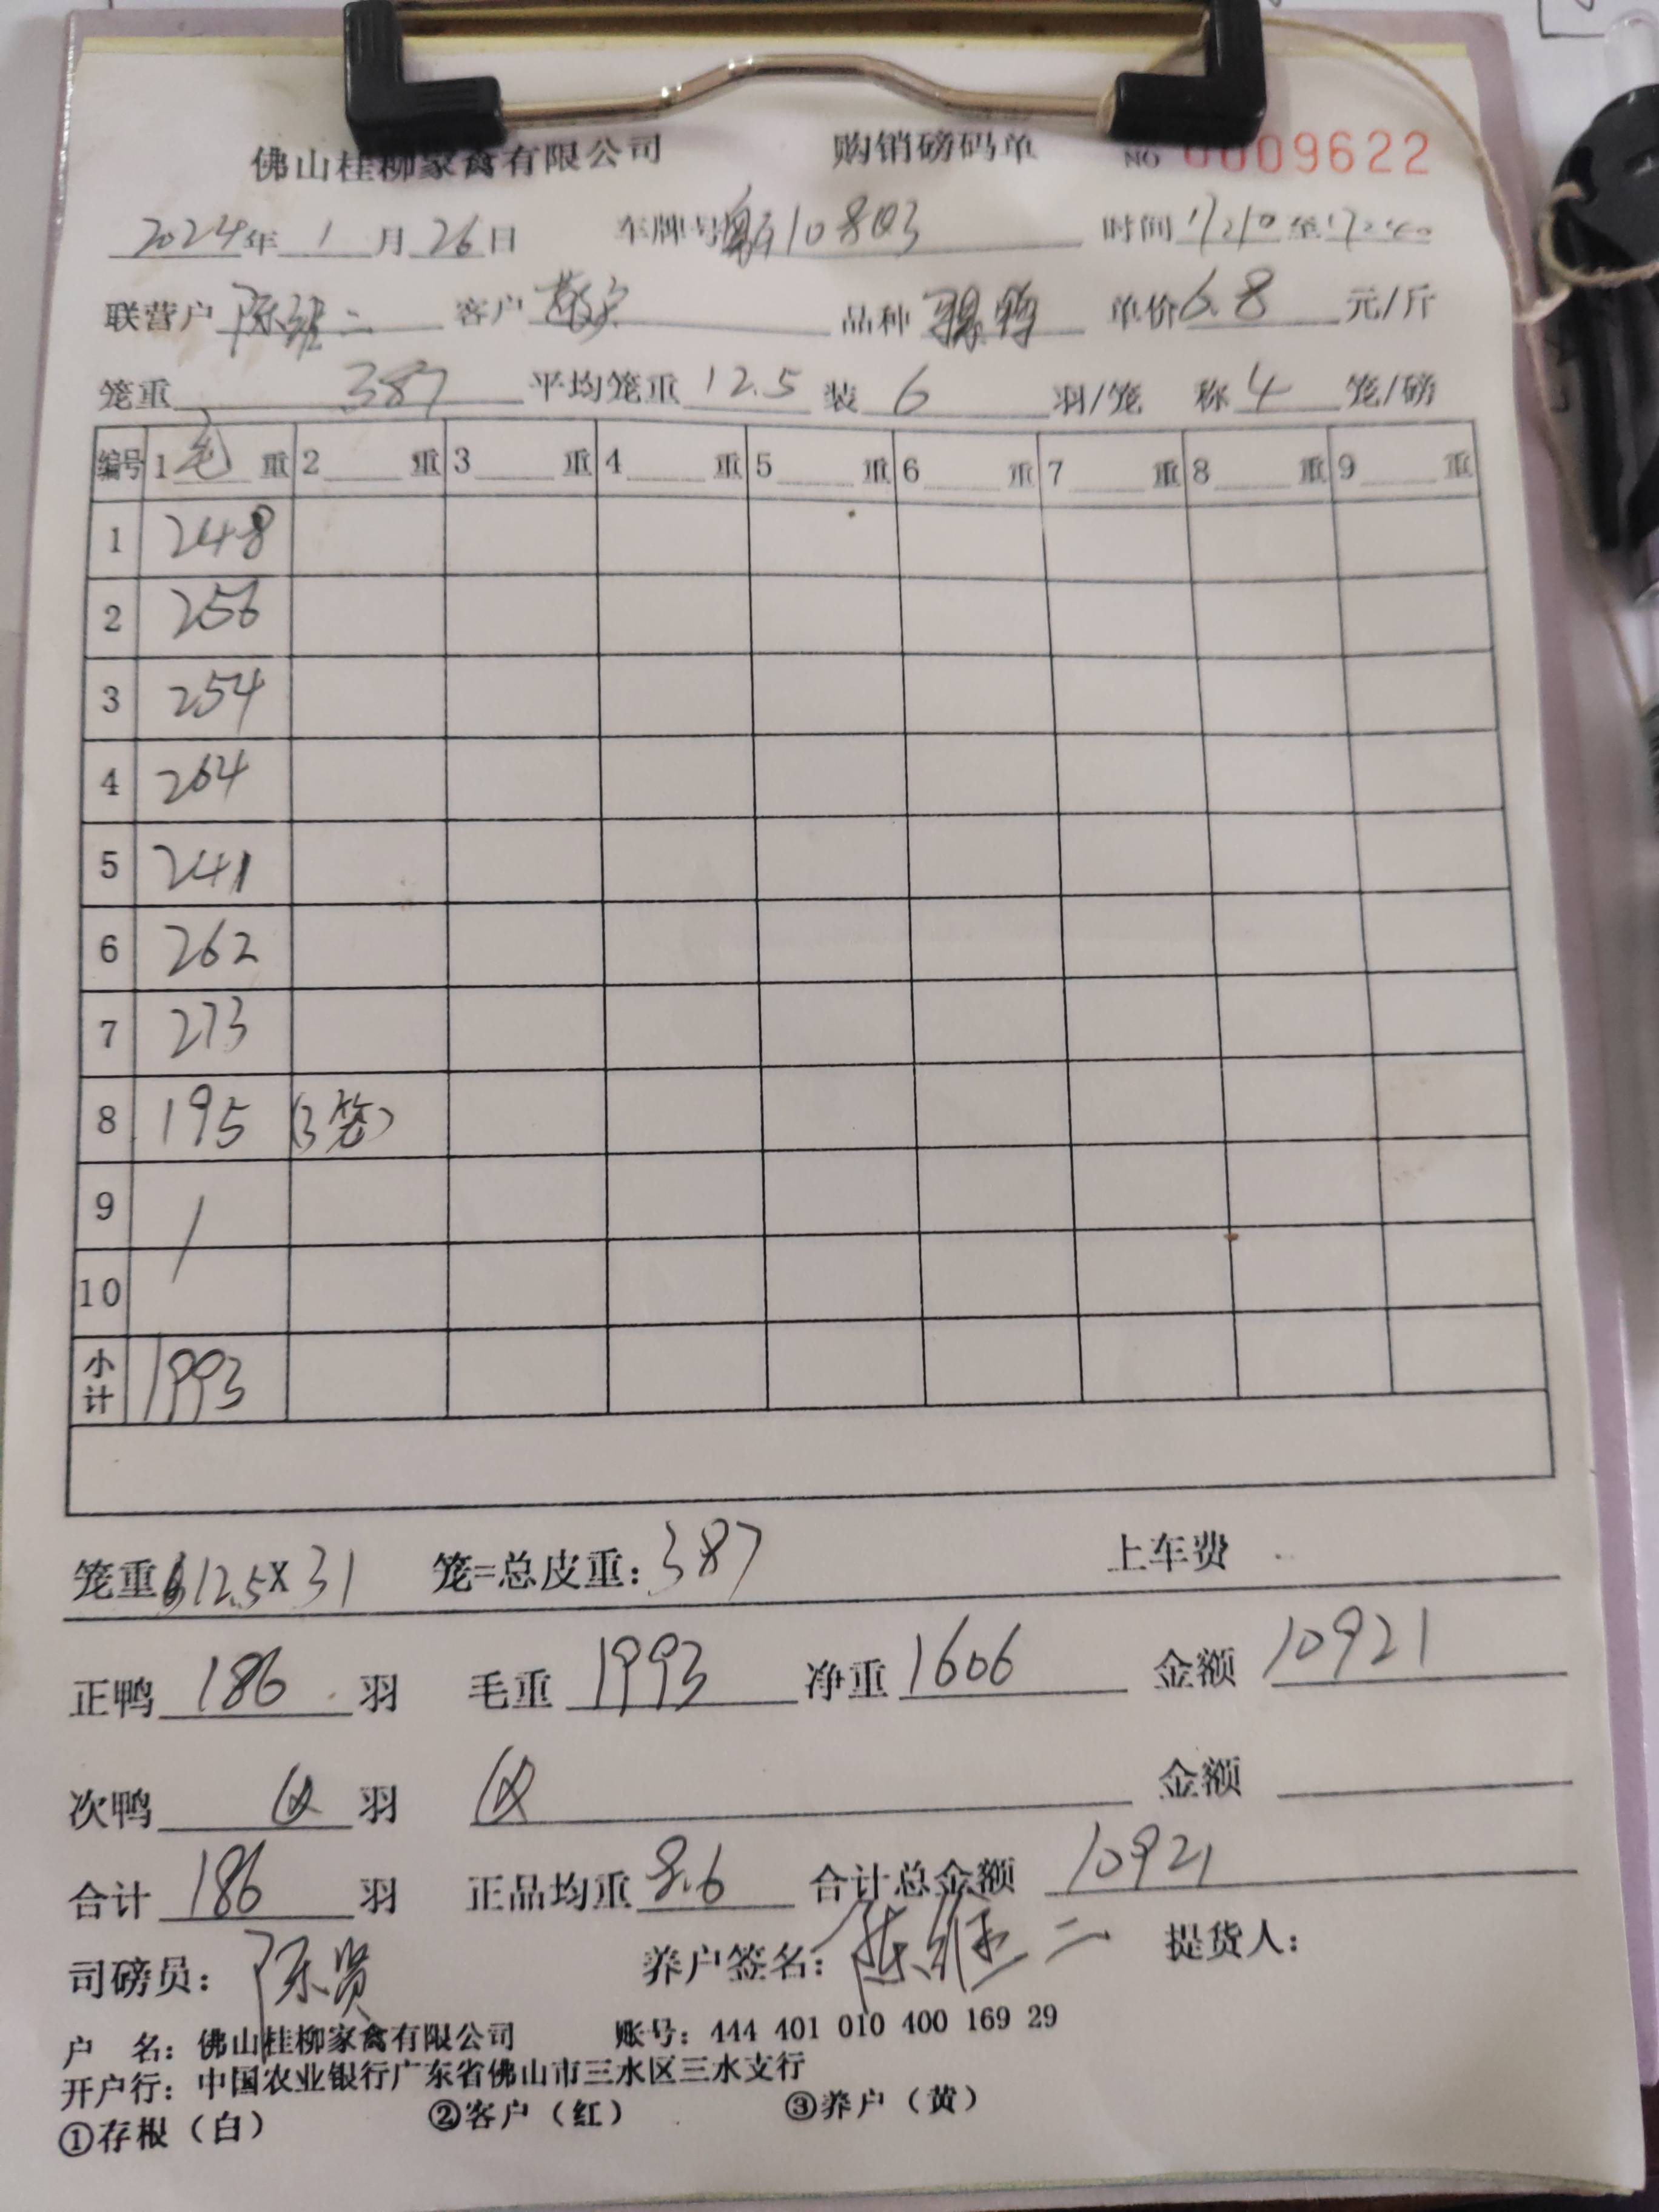 佛山桂柳家禽有限公司 购销磅码单 NO 0009622
2024年 1 月 26日 车牌号 时间 17:10 至 17:40
联营户 陈继二 客户 散户 品种 单价 6.8 元/斤
笼重 387 平均笼重 12.5 装 6 羽/笼 称 4 笼/磅
编号 1 毛 重 2 重 3 重 4 重 5 重 6 重 7 重 8 重 9 重
1 248
2 256
3 254
4 264
5 241
6 262
7 273
8 195 (3笼)
9 /
10
小计 1993
笼重 12.5 X 31 笼=总皮重: 387 上车费
正鸭 186 羽 毛重 1993 净重 1606 金额 10921
次鸭 羽 金额
合计 186 羽 正品均重 8.6 合计总金额 10921
司磅员: 陈贤 养户签名: 陈继二 提货人:
户 名: 佛山桂柳家禽有限公司 账号: 444 401 010 400 169 29
开户行: 中国农业银行广东省佛山市三水区三水支行
①存根（白） ②客户（红） ③养户（黄）